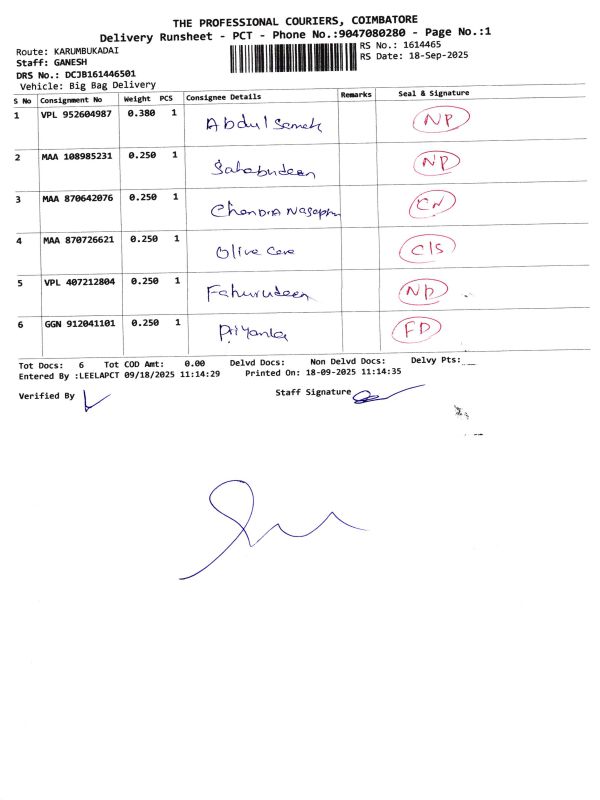 THE PROFESSIONAL COURIERS, COIMBATORE
Delivery Runsheet - PCT - Phone No.:9047080280 - Page No.:1
Route: KARUMBUKADAI
RS No.: 1614465
Staff: GANESH
RS Date: 18-Sep-2025
DRS No.: DCJB161446501
Vehicle: Big Bag Delivery
S No Consignment No Weight PCS Consignee Details Remarks Seal & Signature
1 VPL 952604987 0.380 1 Abdul NP
2 MAA 108985231 0.250 1 Sahabudeen NP
3 MAA 870642076 0.250 1 Chendra CN
4 MAA 870726621 0.250 1 Olive Care C/S
5 VPL 407212804 0.250 1 Fahurudeen NP
6 GGN 912041101 0.250 1 Priyanka FD
Tot Docs: 6 Tot COD Amt: 0.00 Delvd Docs: Non Delvd Docs: Delvy Pts:
Entered By :LEELAPCT 09/18/2025 11:14:29 Printed On: 18-09-2025 11:14:35
Verified By
Staff Signature